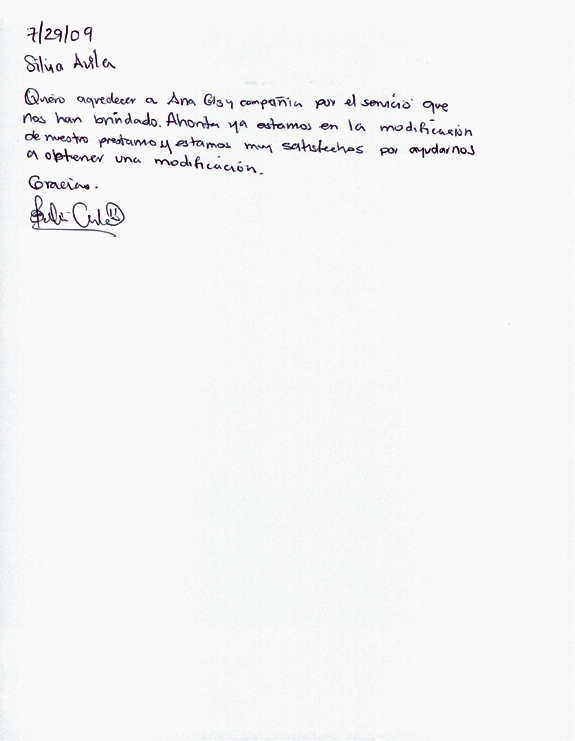 7/29/09
Silvia Avila
Quiero agredecer a Ana y compañia por el servicio que
nos han brindado. Ahorita ya estamos en la modificación
de nuestro prestamo y estamos muy satisfechos por ayudarnos
a obtener una modificación.
Gracias.